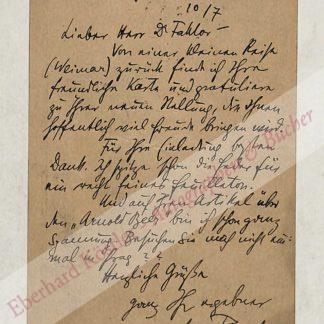 10/7
Lieber Herr Dr Faktor -
Von einer kleinen Reise
(Weimar) zurück finde ich Ihre
freundliche Karte und gratuliere
zu Ihrer neuen Stellung, die Ihnen
hoffentlich viel Freude bringen wird.
Für Ihre Einladung besten
Dank. Ich spitze schon die Feder für
ein recht feines Feuilleton.
Und auf Ihren Artikel über
den "Arnold Beer" bin ich schon ganz
Spannung. Besuchen Sie mich nicht ein-
mal in Prag??
Herzliche Grüße
ganz Ihr ergebener
Eberhard Köstler Autographen & Bücher